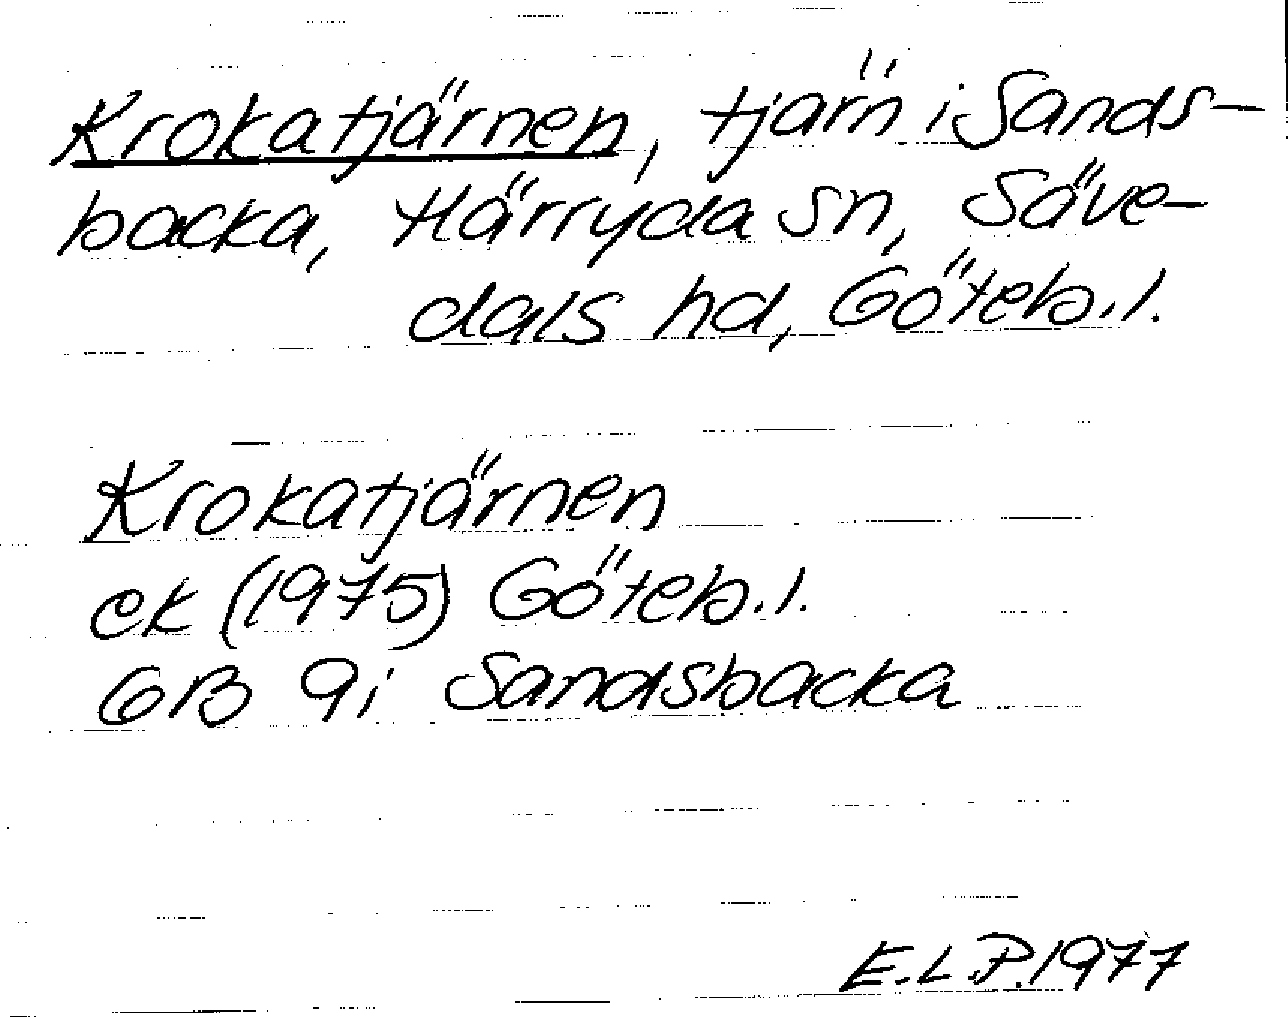 Krokatjärnen, tjärn i Sands-
backa, Härryda sn, Säve-
dals hd, Göteb.l.
Krokatjärnen
ek (1975) Göteb.l.
6B 9i Sandsbacka
E.L.P. 1977